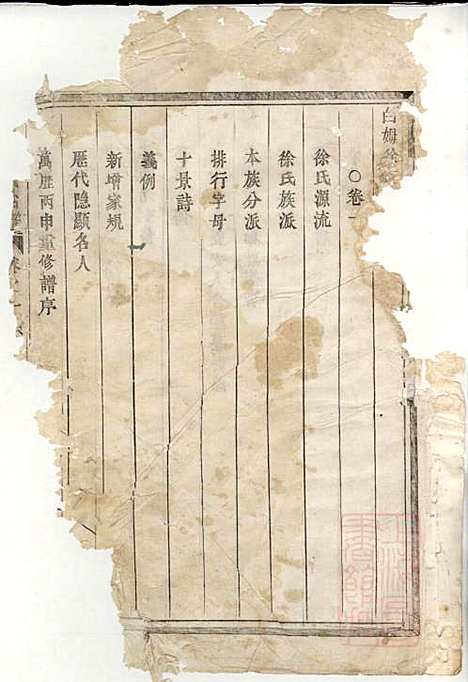 白姆
○卷一
徐氏源流
徐氏族派
本族分派
排行字母
十景詩
義例
新增家規
歷代隐顯名人
萬歷丙申重修譜序